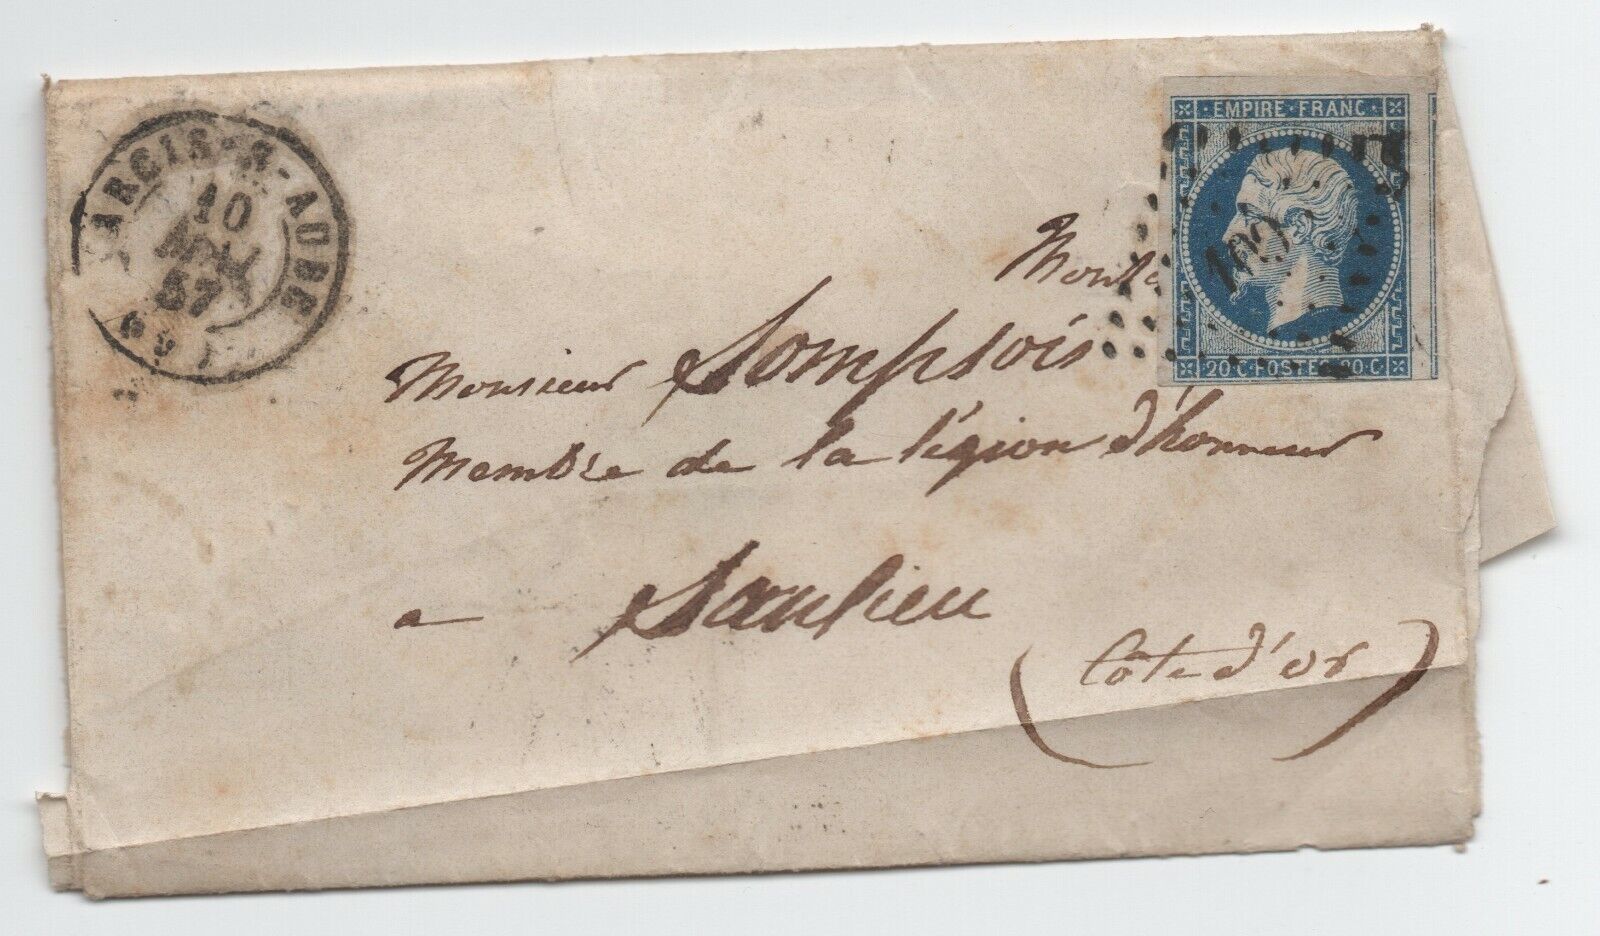 ARCIS-S-AUBE
10
57
EMPIRE FRANC
20 C POSTE 20 C
Monsieur Sompsois
Membre de la légion d'honneur
a Saulieu
(Côte d'or)